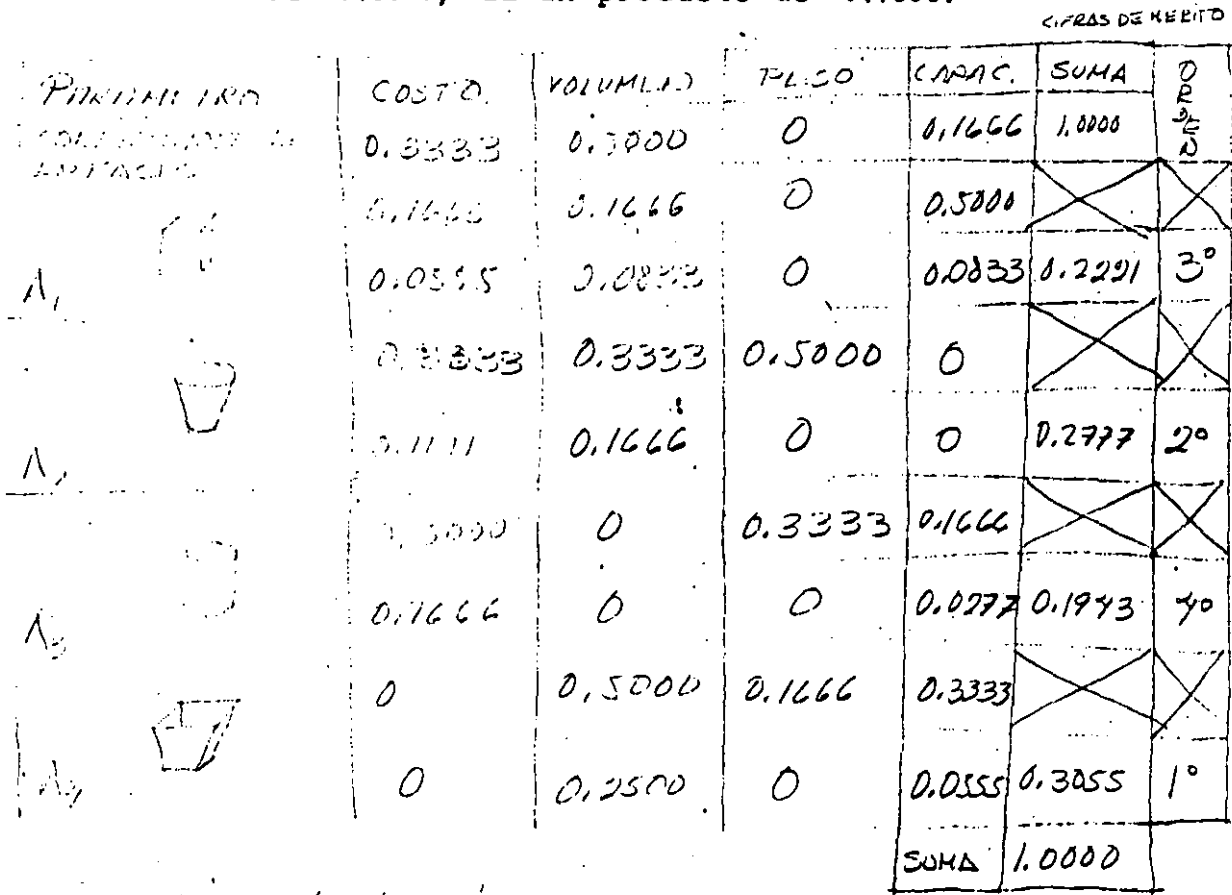 CIFRAS DE MERITO
COSTO VOLUMEN PESO CAPAC. SUMA ORDEN
0.3333 0.5000 0 0.1666 1.0000
0.1666 0.1666 0 0.5000
A1 0.0555 0.0833 0 0.0833 0.2221 3°
0.3333 0.3333 0.5000 0
0.1111 0.1666 0 0 0.2777 2°
0.5000 0 0.3333 0.1666
A3 0.1666 0 0 0.0277 0.1943 4°
0 0.5000 0.1666 0.3333
A4 0 0.2500 0 0.0555 0.3055 1°
SUMA 1.0000